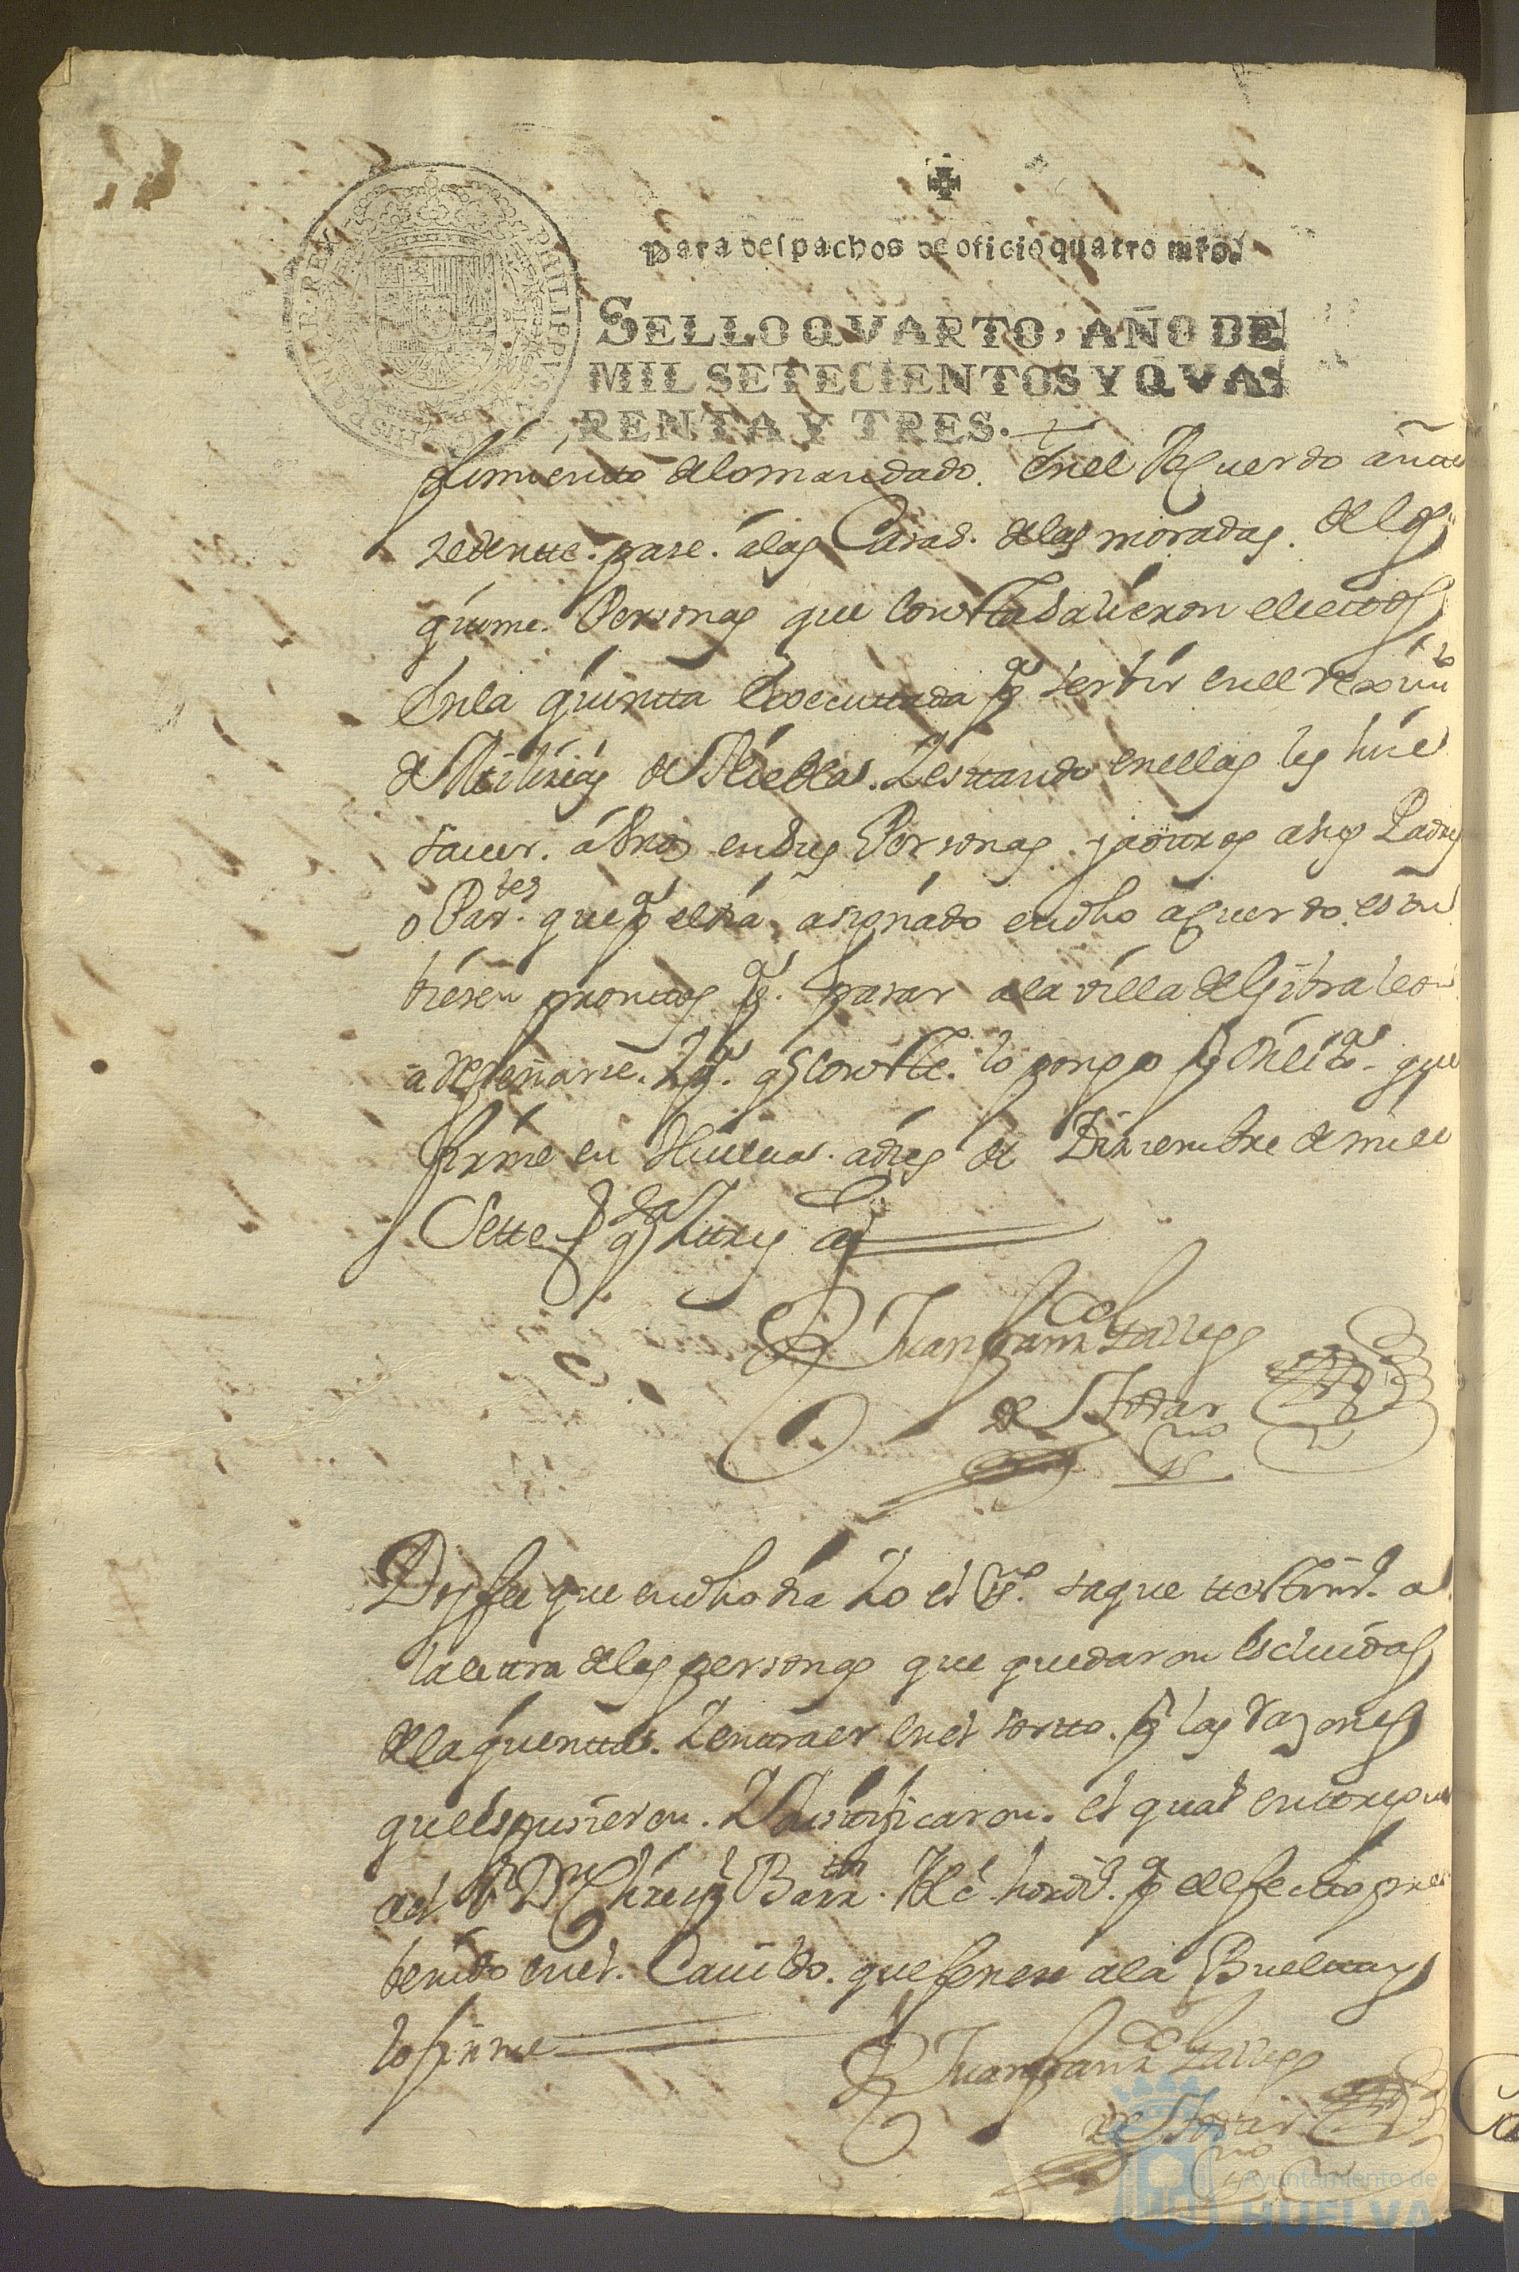 PHILIPPUS V D G HISPANIAR REX
Para despachos de oficio quatro mrs.
SELLO QVARTO, AÑO DE
MIL SETECIENTOS Y QVA
RENTA Y TRES.
plimiento de lo mandado. En el Acuerdo antte
zedentte. pase. â las Casas. de las moradas. de las
quinze. Personas que Constta Salieron electtos
En la quintta Executtada pª serbir en el reximtº
de Milizias de Niebla. Y esttando en ellas les hize
saver. a Unos en sus Personas. y a otros a sus Padres
o Partes. que pª el dia asignado en dho acuerdo. esttu
biesen promttos pª. pasar a la villa de Gibraleon
a Y pª. q Constte. lo pongo pr dilixª. que
firme en Huelva. a diez de Diziembre de mill
Sette qda y tres as
Juan Franco Gallego
de Ttovar
Esno
Doy fee que en dho dia Yo el Esno. saque testtimº. a
la letra de las personas que quedaron escluidas
de la quintta. Y enttraer en el sortteo. pr las razones
que espusieron. Y Justtificaron. el qual enttregue
al Sr Dn Barn. Alce hordº. pª el efectto pre
benido en el. Cavildo. que fenese a la Buelta y
lo firme
Juan Franco Gallego
de Ttovar
Esno
Ayuntamiento de
HUELVA